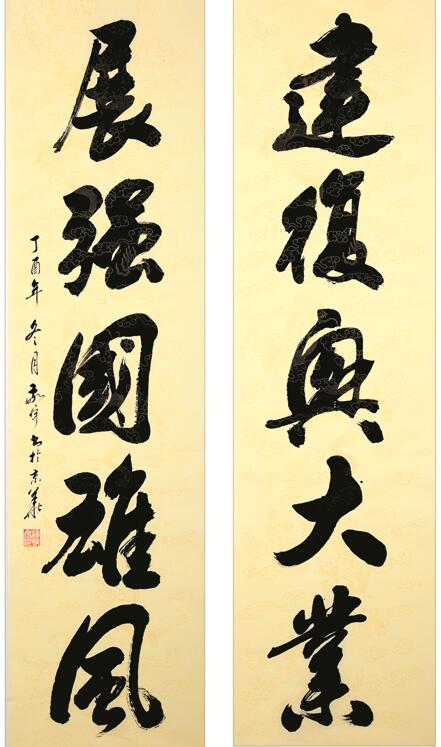 建復興大業
展强國雄風
丁酉年冬月 書於京華